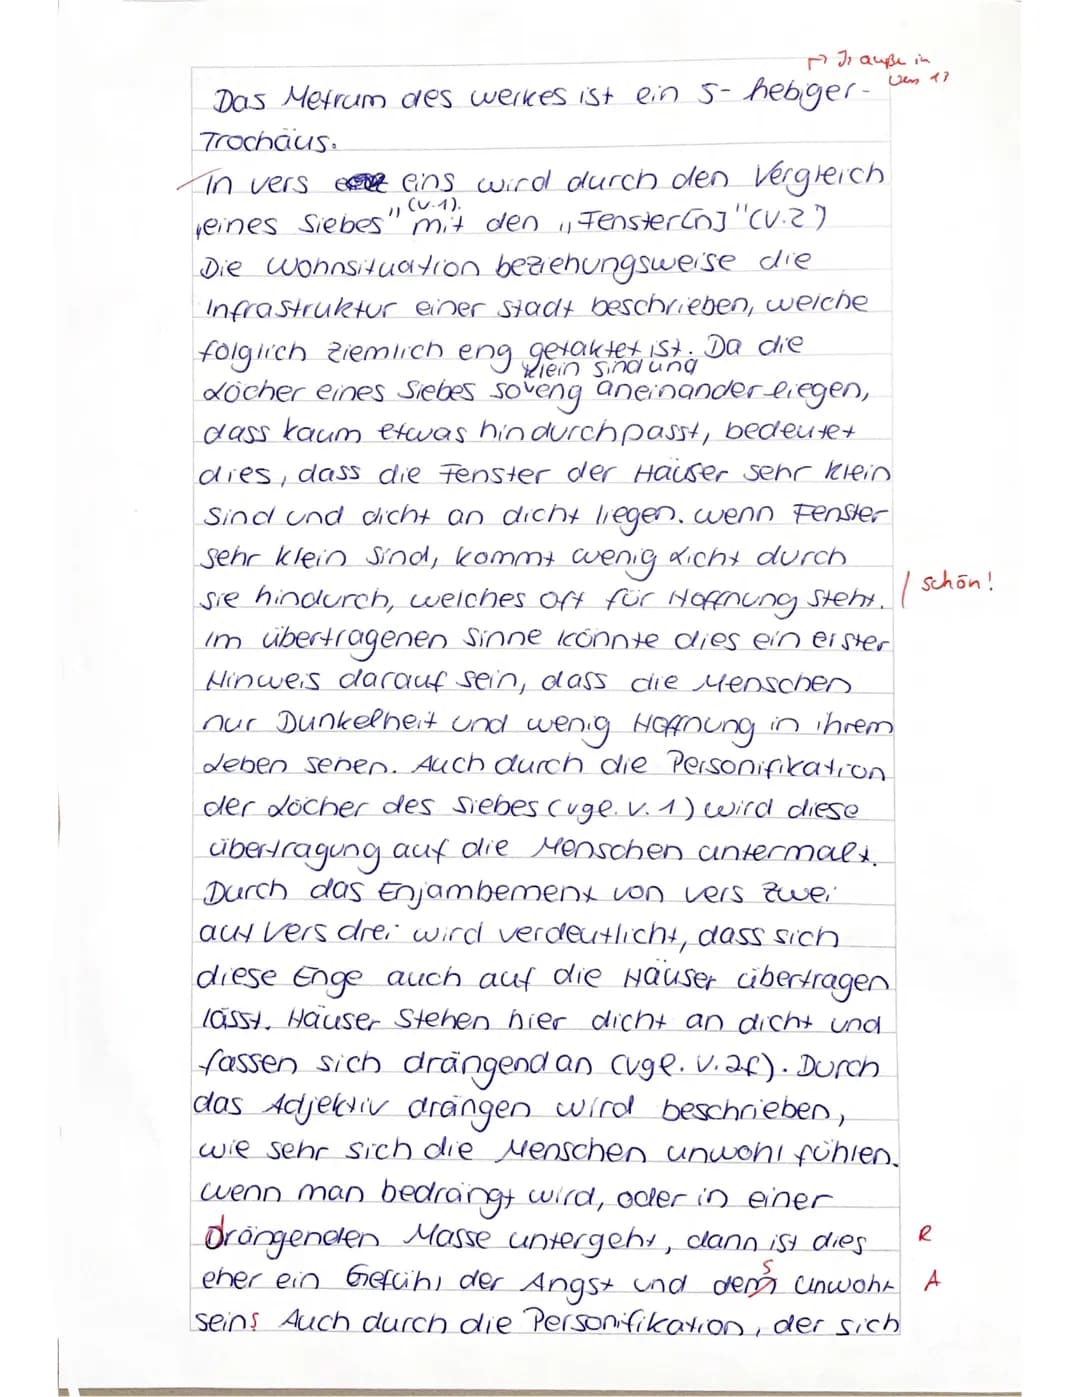 → Ja außer in
Vers 1?
Das Metrum des Werkes ist ein 5-hebiger-
Trochäus.
In Vers eins wird durch den Vergleich
(V.1).
„eines Siebes" mit den „Fenster[n]"(V.2)
Die Wohnsituation beziehungsweise die
Infrastruktur einer Stadt beschrieben, welche
folglich ziemlich eng getaktet ist. Da die
klein sind und
Löcher eines Siebes so eng aneinander liegen,
dass kaum etwas hindurchpasst, bedeutet
dies, dass die Fenster der Häuser sehr klein
sind und dicht an dicht liegen. Wenn Fenster
sehr klein sind, kommt wenig Licht durch
sie hindurch, welches oft für Hoffnung steht. / schön!
Im übertragenen Sinne könnte dies ein erster
Hinweis darauf sein, dass die Menschen
nur Dunkelheit und wenig Hoffnung in ihrem
Leben sehen. Auch durch die Personifikation
der Löcher des Siebes (vgl. V. 1) wird diese
übertragung auf die Menschen untermalt.
Durch das Enjambement von Vers zwei
auf Vers drei wird verdeutlicht, dass sich
diese Enge auch auf die Häuser übertragen
lässt. Häuser stehen hier dicht an dicht und
fassen sich drängend an (vgl. V. 2f). Durch
das Adjektiv drängen wird beschrieben,
wie sehr sich die Menschen unwohl fühlen.
Wenn man bedrängt wird, oder in einer
Drängenden Masse untergeht, dann ist dies R
s
eher ein Gefühl der Angst und dem unwohl A
seins Auch durch die Personifikation, der sich